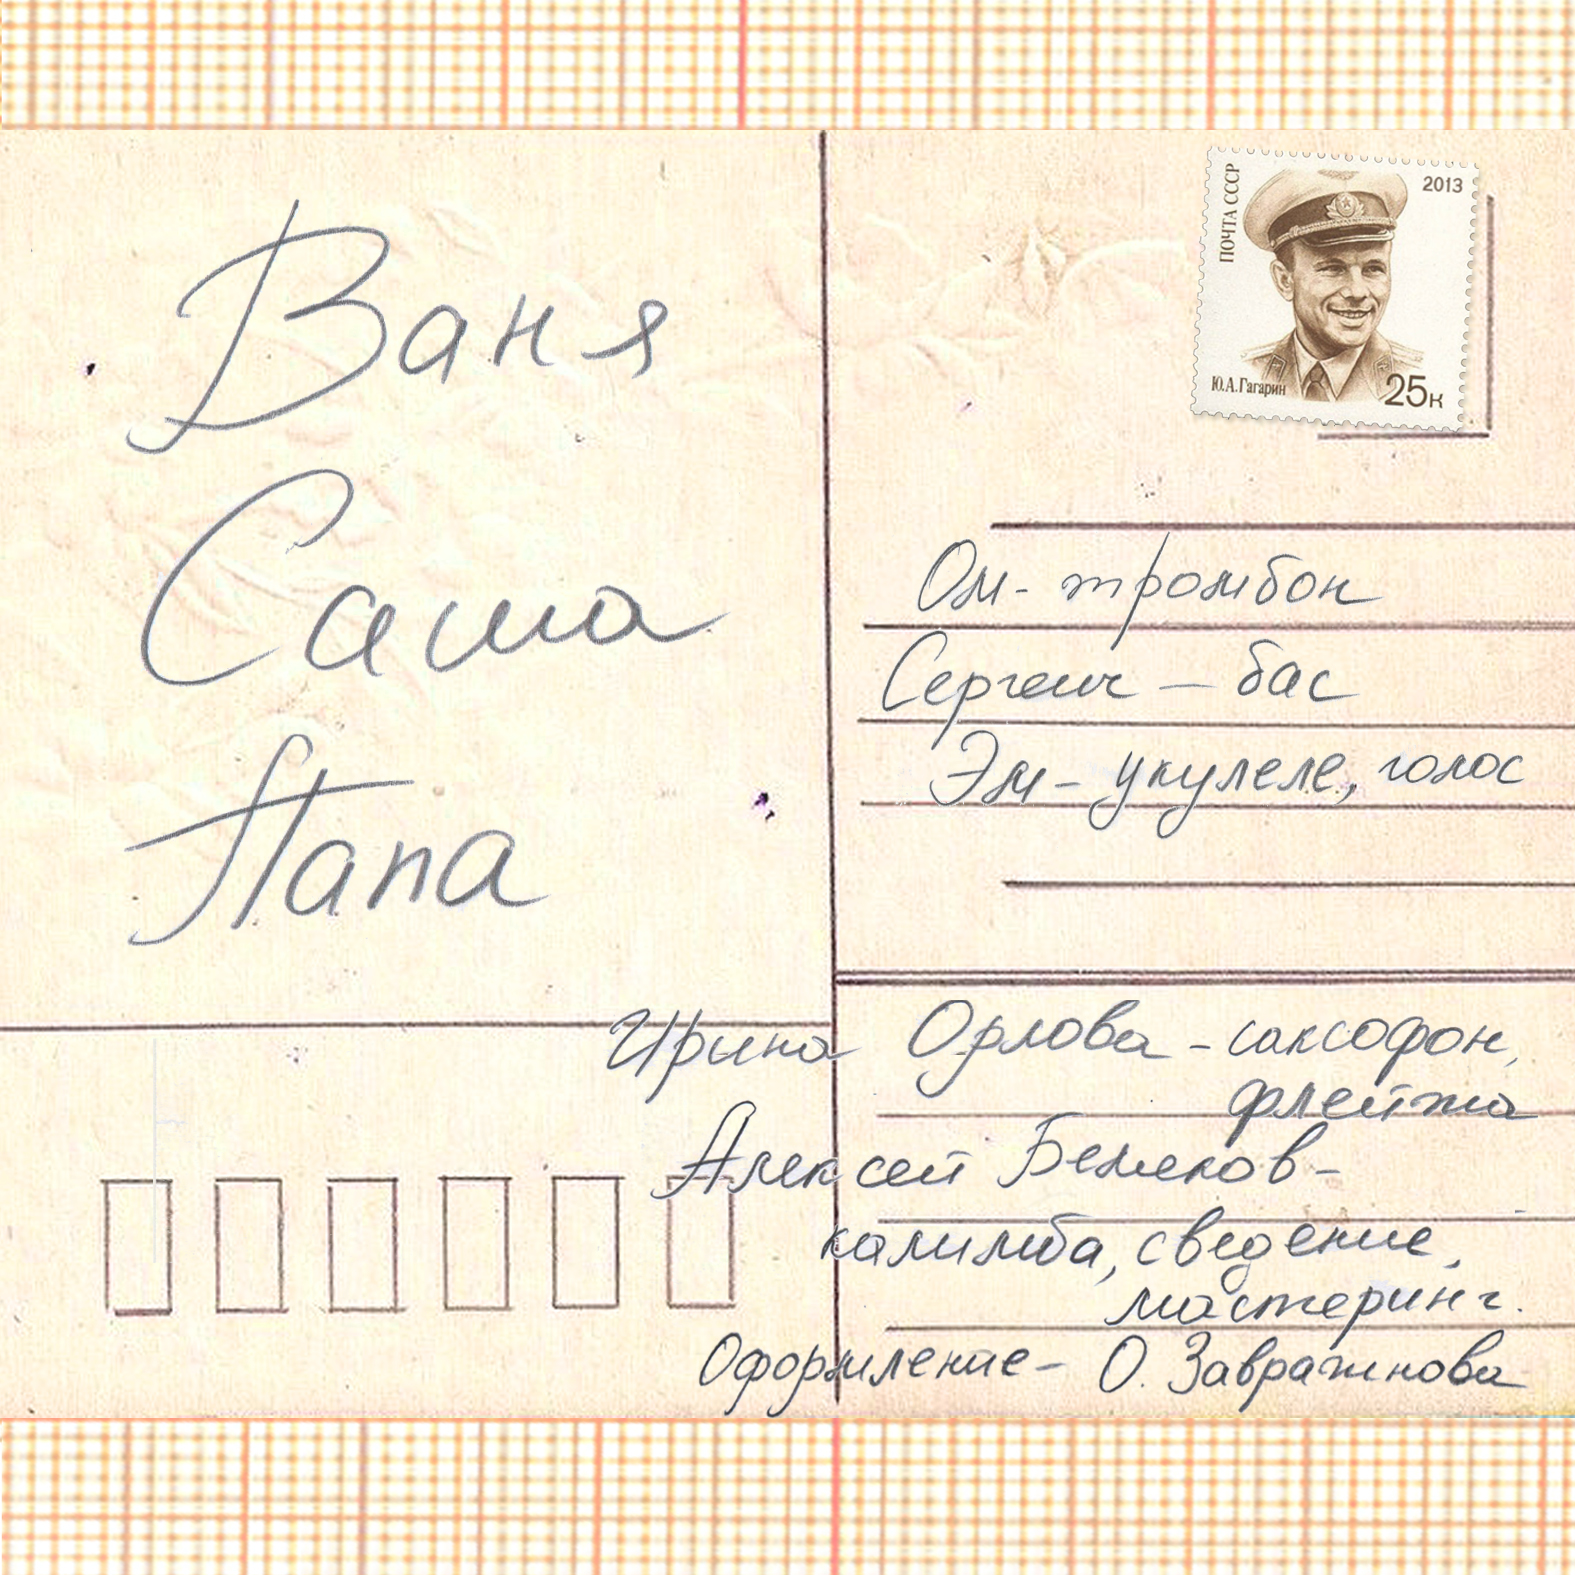 Ваня
Саша
Папа
ПОЧТА СССР
2013
Ю.А.Гагарин
25к
Ом - тромбон
Сергеич — бас
Эм - укулеле, голос
Ирина Орлова - саксофон,
флейта
Алексей Беляков -
калимба, сведение,
мастеринг.
Оформление - О. Завражнова